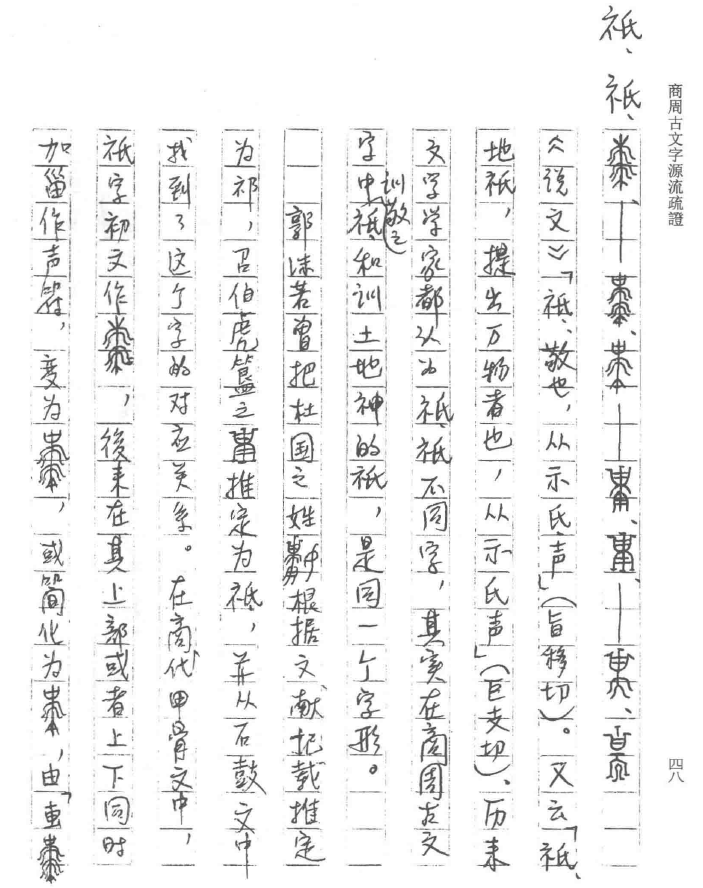 商周古文字源流疏證
四八
祇、祗、
《说文》「祗、敬也，从示氐声」（旨移切）。又云「祇、
地祇，提出万物者也，从示氏声」（巨支切）、历来
文字学家都认为祇、祗不同字，其实在商周古文
字中训敬之祗和训土地神的祇，是同一个字形。
郭沫若曾把杜国之姓根据文献记载推定
为祁，召伯虎簋之推定为祗，并从石鼓文中
找到了这个字的对应关系。在商代甲骨文中，
祇字初文作，後来在其上部或者上下同时
加甾作声符，变为，或简化为，由